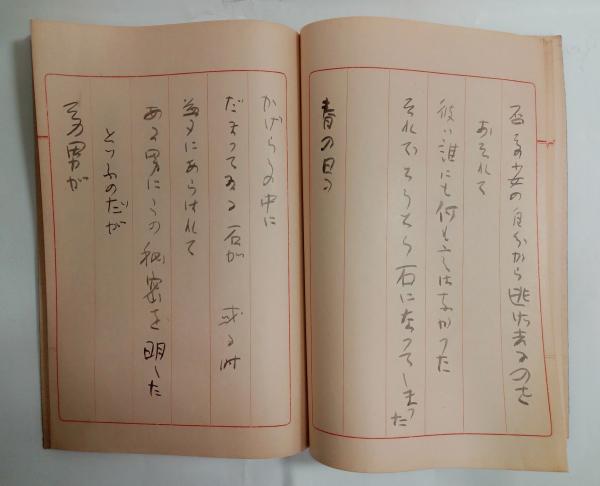 少女の自分から逃げ去るのを
おそれて
彼は誰にも何も云はなかった
それでとうとう石になってしまった
春の日の
かげらふの中に
だまってゐる石が 或る時
夢にあらはれて
ある男にその秘密を明した
といふのだが
その男が